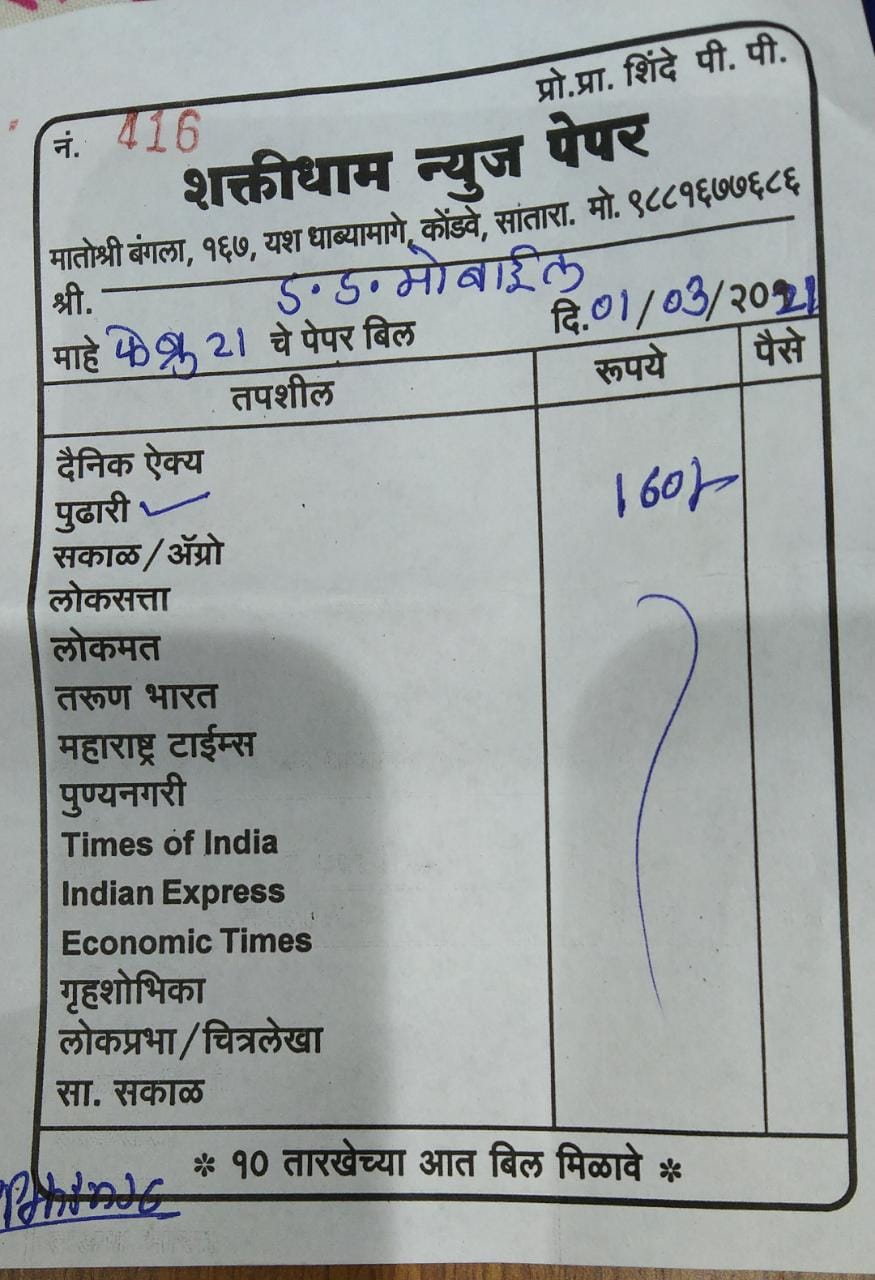 प्रो.प्रा. शिंदे पी. पी.
नं. 416
शक्तीधाम न्युज पेपर
मातोश्री बंगला, १६७, यश धाब्यामागे, कोंडवे, सातारा. मो. ९८८१६७७६८६
श्री. ड. ड. मोबाईल
माहे फेब्रु 21 चे पेपर बिल दि. 01/03/२०21
तपशील रूपये पैसे
दैनिक ऐक्य
पुढारी ✓ 160/-
सकाळ/ॲग्रो
लोकसत्ता
लोकमत
तरूण भारत
महाराष्ट्र टाईम्स
पुण्यनगरी
Times of India
Indian Express
Economic Times
गृहशोभिका
लोकप्रभा/चित्रलेखा
सा. सकाळ
* १० तारखेच्या आत बिल मिळावे *